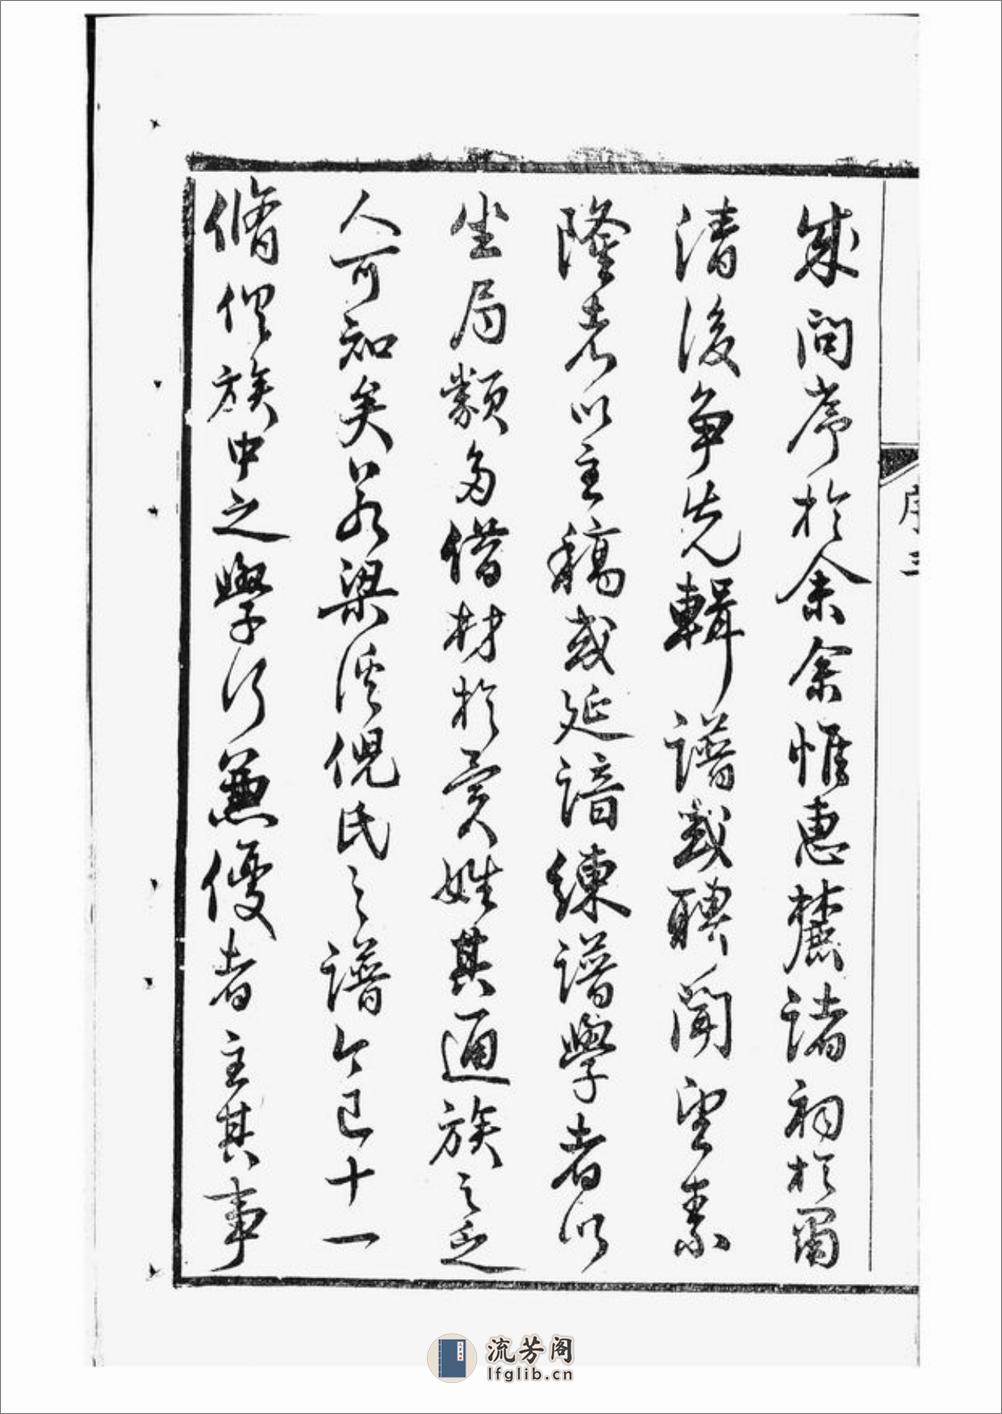 成問序於余余惟惠麓諸祠於蜀
清後爭先輯譜或聘聞望素
隆者以主稿或延諳練譜學者以
坐局類多借材於異姓其通族之乏
人可知矣若梁溪倪氏之譜今已十一
脩俱族中之學行兼優者主其事
序 三
流芳阁
lfglib.cn